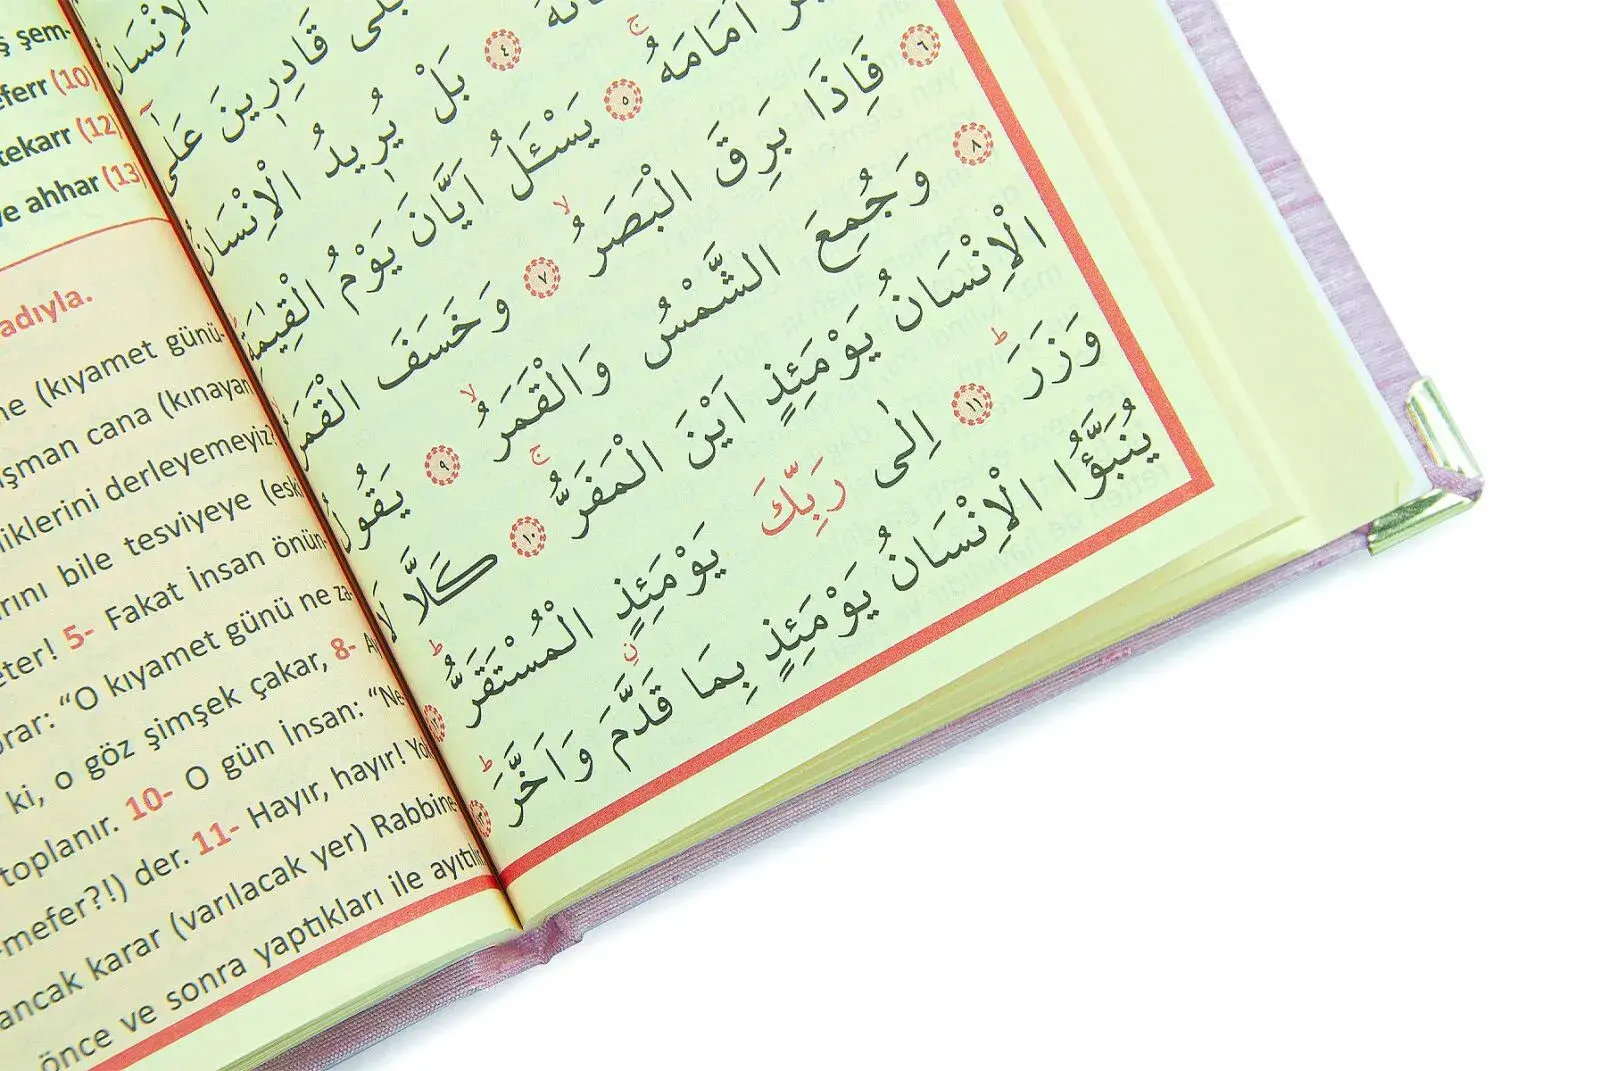 ş şem-
eferr (10)
tekarr (12)
ve ahhar (13)
adıyla.
ne (kıyamet günü-
ışman cana (kınayan
iklerini derleyemeyiz
arını bile tesviyeye (eski
eter! 5- Fakat İnsan önün-
orar: “O kıyamet günü ne za-
ki, o göz şimşek çakar, 8- A
toplanır. 10- O gün İnsan: “Ne
-mefer?!) der. 11- Hayır, hayır! Yo
ancak karar (varılacak yer) Rabbine-
önce ve sonra yaptıkları ile ayıtılır
الْاِنْسَانُ
بَلٰى قَادِرِينَ عَلٰٓى
٤ بَلْ يُرِيدُ الْاِنْسَانُ
اَمَامَهُۚ ٥ يَسْـَٔلُ اَيَّانَ يَوْمُ الْقِيٰمَةِۜ
٦ فَاِذَا بَرِقَ الْبَصَرُۙ ٧ وَخَسَفَ الْقَمَرُ
٨ وَجُمِعَ الشَّمْسُ وَالْقَمَرُۙ ٩ يَقُولُ
الْاِنْسَانُ يَوْمَئِذٍ اَيْنَ الْمَفَرُّۚ ١٠ كَلَّا لَا
وَزَرَۜ ١١ اِلٰى رَبِّكَ يَوْمَئِذٍ الْمُسْتَقَرُّۜ ١٢
يُنَبَّؤُا الْاِنْسَانُ يَوْمَئِذٍ بِمَا قَدَّمَ وَاَخَّرَۜ ١٣